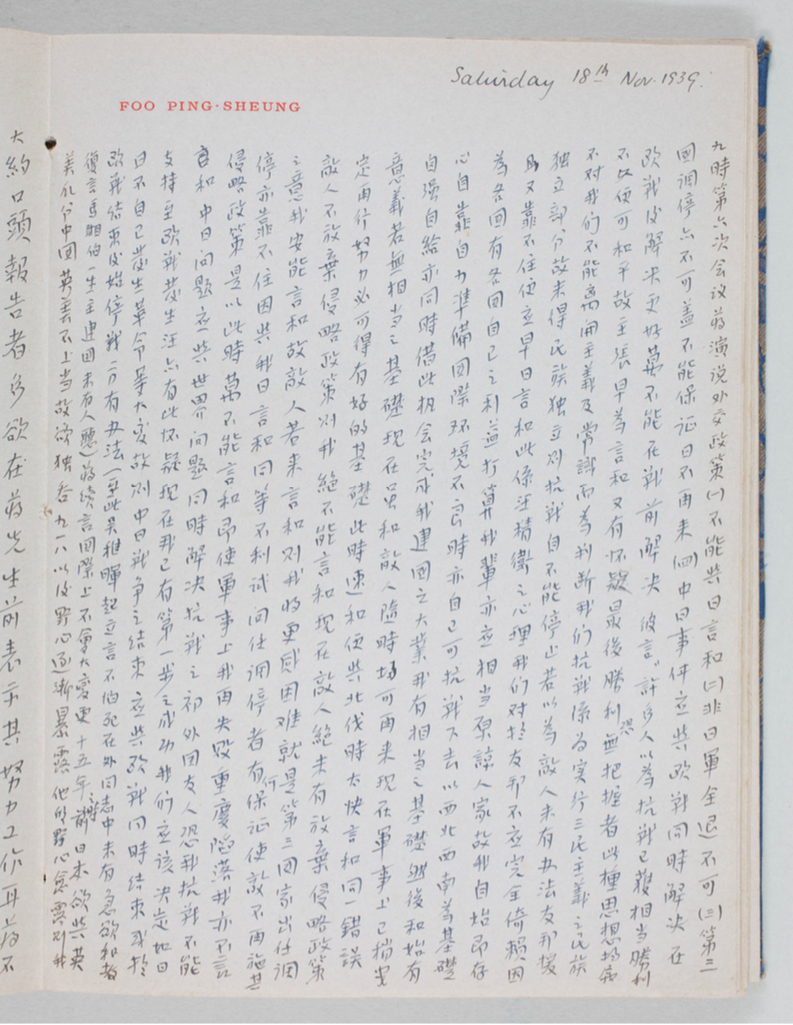 Saturday 18th Nov. 1939.
FOO PING-SHEUNG
九時第六次会议蒋演说外交政策(一)不能与日言和(二)非日軍全退不可(三)第三
國调停亦不可蓋不能保证日不再来(四)中日事件应与欧戦同時解决在
欧战後解决更好萬不能在戦前解决彼言许多人以為抗戦已獲相当勝利
不如便可和平故主張早為言和又有怀疑最後勝利恐無把握者此種思想均属
不对我们不能离開主義及常識而為判断我们抗戦係为实行三民主義之民族
独立部分故未得民族独立则抗戦自不能停止若以為敵人未有办法友邦援
助又靠不住便应早日言和此係汪精衛之心理我们对於友邦不应完全倚賴因
為各国有各国自己之利益打算我輩亦应相当原諒人家故我自始即存
心自靠自力準備国際环境不良時亦自己可抗戦下去以西北西南為基礎
自强自給亦同時借此机会完成我建国之大業我有相当之基礎然後和始有
意義若無相当之基礎现在虽和敵人隨時均可再来现在軍事上已稍安
定再行努力必可得有好的基礎此時速和便与北伐時太快言和同一錯誤
敵人不放棄侵略政策则我絶不能言和现在敵人絶未有放棄侵略政策
之意我安能言和故敵人若来言和则我將更感困难就是第三国家出任调
停亦靠不住因与我日言和同等不利试问任调停者有何保证使敵不再施其
侵略政策是以此時萬不能言和即使軍事上我再失敗重慶陷落我亦不言
和中日问题应与世界问题同時解决抗戦之初外国友人恐我抗戦不能
支持至欧戦發生汪亦有此怀疑现在我已有第一步之成功我们应该决定如日
日不自己發生革命等大变故则中日戦争之结束应与欧戦同時结束或於
欧戦结束後始停戦方有办法(至此吴稚暉起立言不怕死在外同志中未有急欲和者
復言馬相伯一生主建国未有人應)蒋续言国際上不會大变更十五年前日本欲与英
美瓜分中国英美不上当故欲独吞九一八以後野心逐漸暴露他的野心愈露则我
大約口頭報告者多欲在蒋先生前表示其努力工作耳蒋不